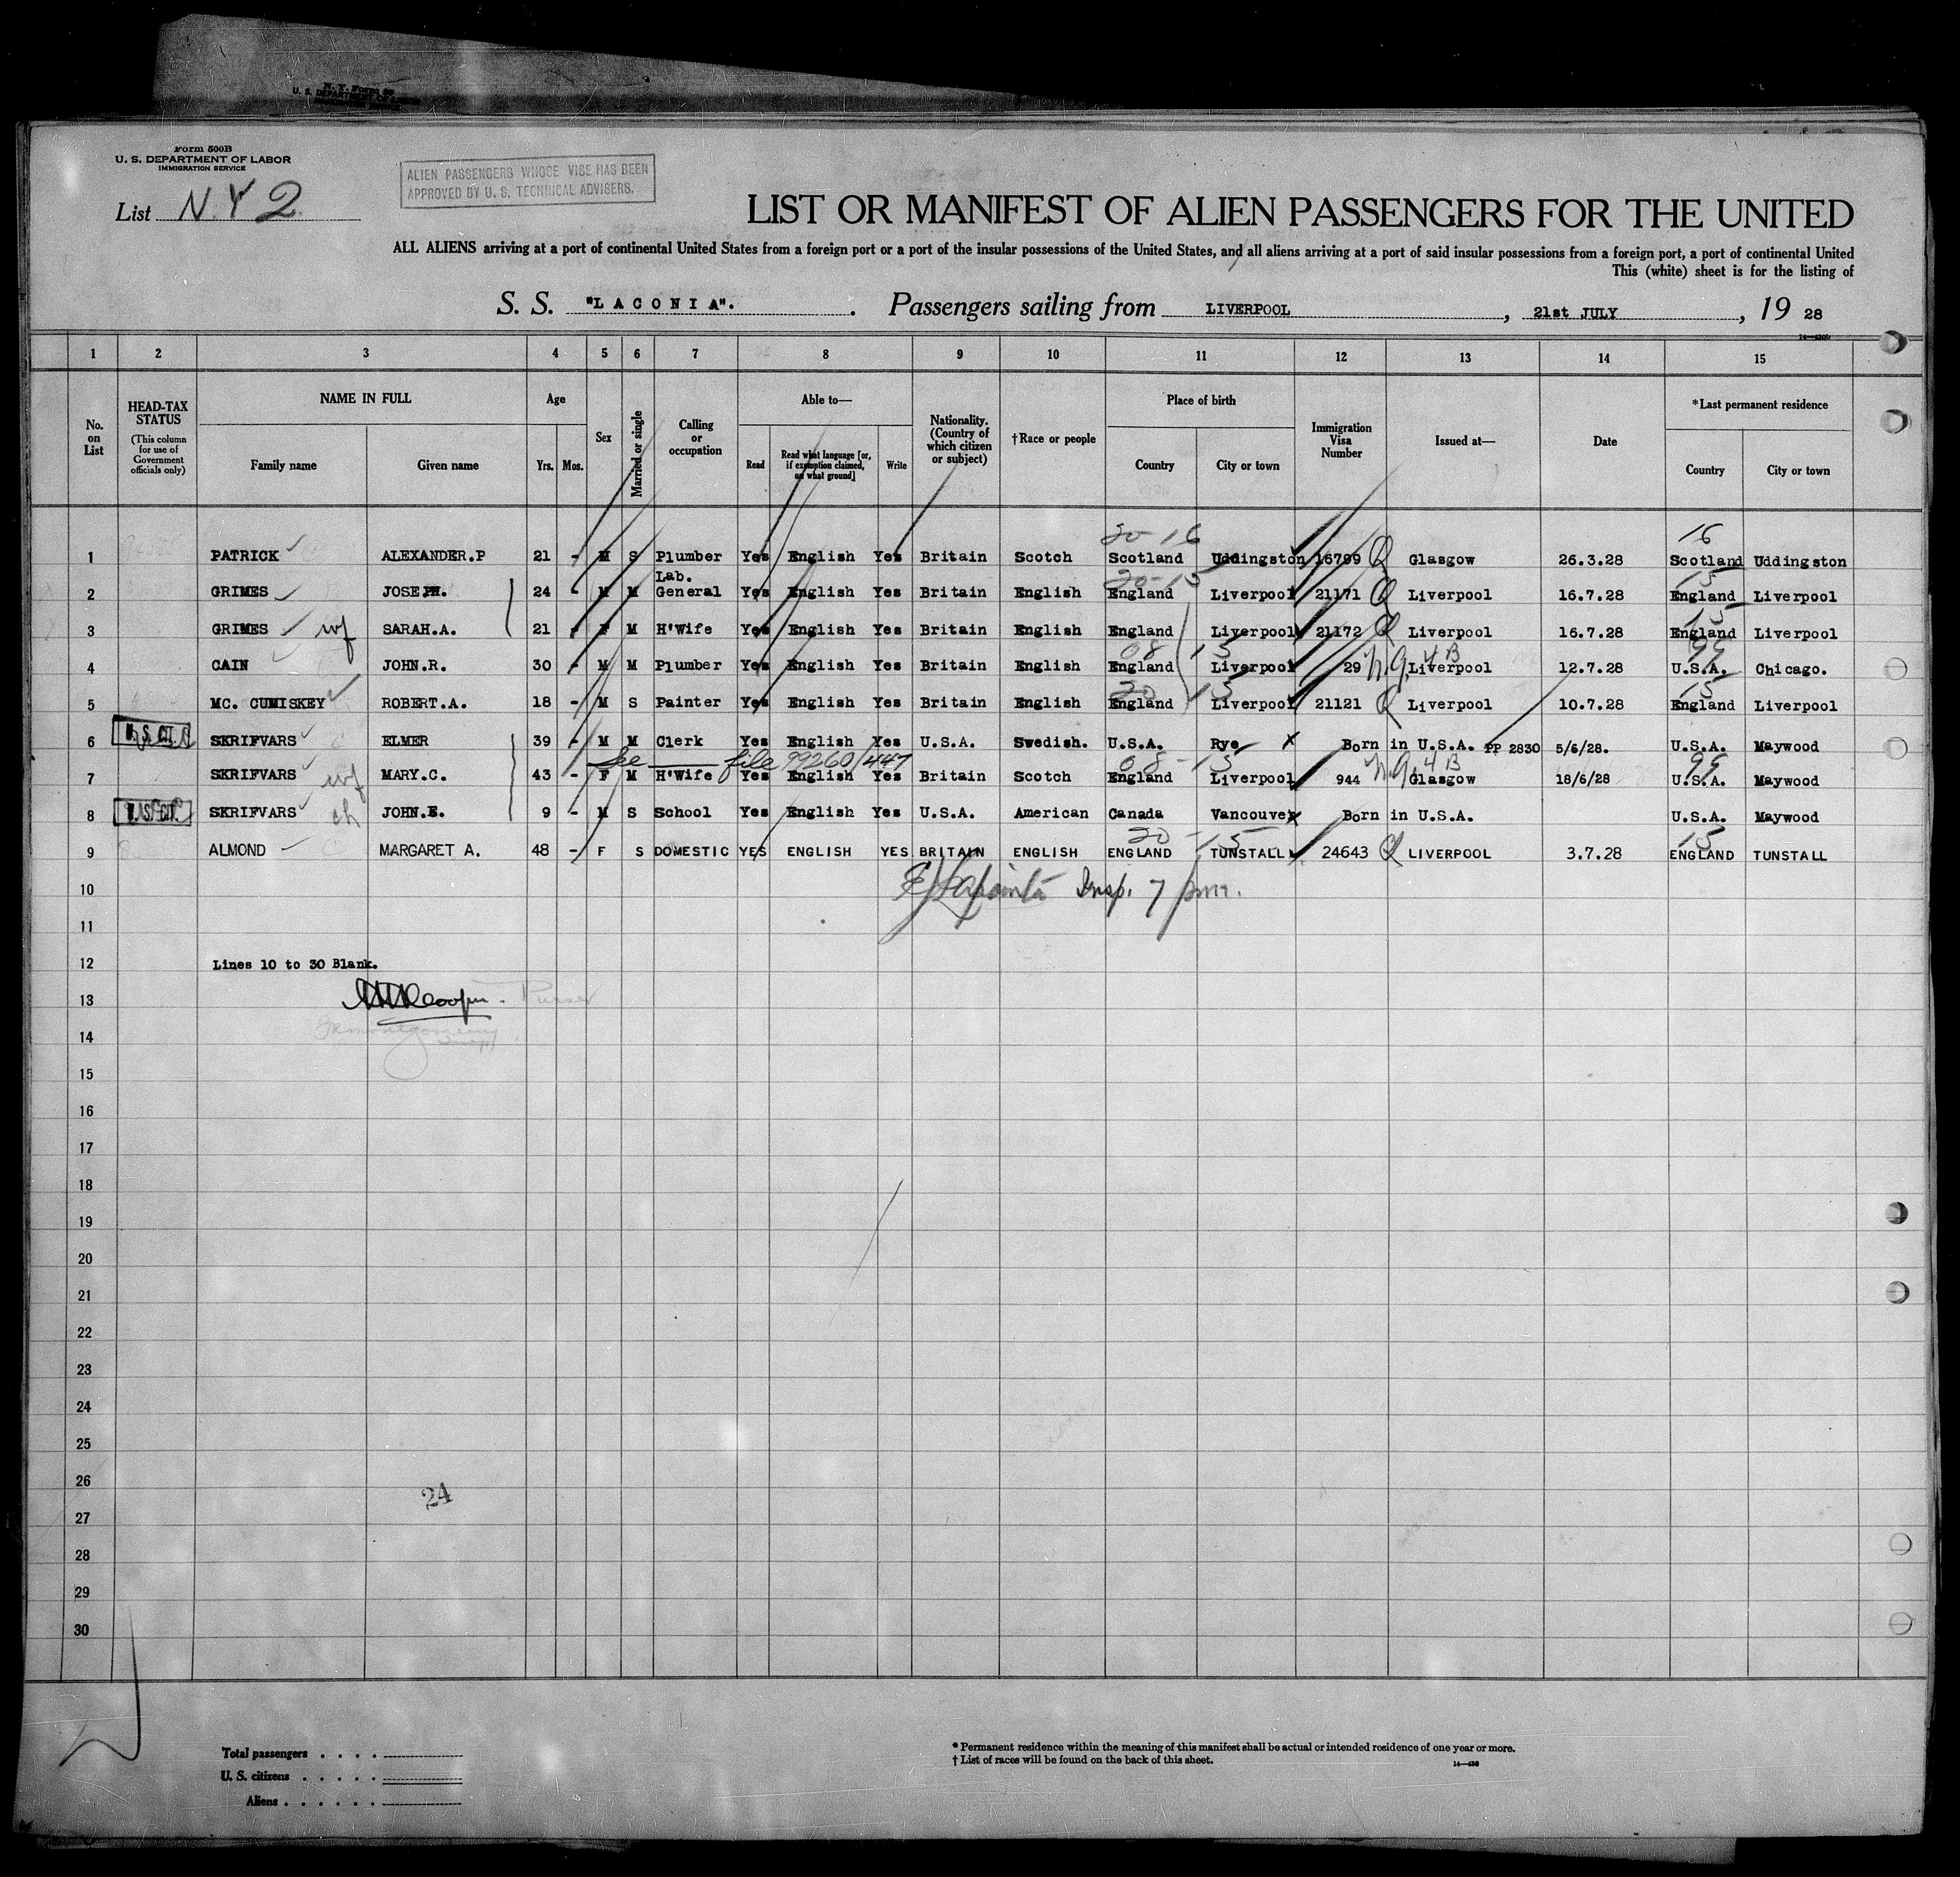 N. Y. Form 
U. S. DEPARTMENT OF LABOR
Form 500B
U. S. DEPARTMENT OF LABOR
IMMIGRATION SERVICE
List N.Y 2
ALIEN PASSENGERS WHOSE VISE HAS BEEN
APPROVED BY U. S. TECHNICAL ADVISERS.
LIST OR MANIFEST OF ALIEN PASSENGERS FOR THE UNITED
ALL ALIENS arriving at a port of continental United States from a foreign port or a port of the insular possessions of the United States, and all aliens arriving at a port of said insular possessions from a foreign port, a port of continental United
This (white) sheet is for the listing of
S. S. "LACONIA". Passengers sailing from LIVERPOOL, 21st JULY, 19 28
1 2 3 4 5 6 7 8 9 10 11 12 13 14 15
No. on List
HEAD-TAX STATUS (This column for use of Government officials only)
NAME IN FULL
Family name Given name
Age
Yrs. Mos.
Sex
Married or single
Calling or occupation
Able to—
Read Read what language [or, if exemption claimed, on what ground] Write
Nationality. (Country of which citizen or subject)
†Race or people
Place of birth
Country City or town
Immigration Visa Number
Issued at—
Date
*Last permanent residence
Country City or town
20-16 16
1 PATRICK ALEXANDER.P 21 - M S Plumber Yes English Yes Britain Scotch Scotland Uddingston 16799 Q Glasgow 26.3.28 Scotland Uddingston
Lab. 20-15 15
2 GRIMES JOSEPH. 24 - M M General Yes English Yes Britain English England Liverpool 21171 Q Liverpool 16.7.28 England Liverpool
15
3 GRIMES wf SARAH.A. 21 - F M H'Wife Yes English Yes Britain English England Liverpool 21172 Q Liverpool 16.7.28 England Liverpool
08 15 99
4 CAIN JOHN.R. 30 - M M Plumber Yes English Yes Britain English England Liverpool 29 n.q. 4B Liverpool 12.7.28 U.S.A. Chicago.
20 15 15
5 MC. CUMISKEY ROBERT.A. 18 - M S Painter Yes English Yes Britain English England Liverpool 21121 Q Liverpool 10.7.28 England Liverpool
6 U.S. CIT. SKRIFVARS ELMER 39 - M M Clerk Yes English Yes U.S.A. Swedish. U.S.A. Rye X Born in U.S.A. PP 2830 5/6/28. U.S.A. Maywood
See file 99260/447 08-15 99
7 SKRIFVARS wf MARY.C. 43 - F M H'Wife Yes English Yes Britain Scotch England Liverpool 944 n.q. 4B Glasgow 18/6/28 U.S.A. Maywood
8 U.S. CIT. SKRIFVARS ch JOHN.E. 9 - M S School Yes English Yes U.S.A. American Canada Vancouver X Born in U.S.A. U.S.A. Maywood
20-15 15
9 ALMOND MARGARET A. 48 - F S DOMESTIC YES ENGLISH YES BRITAIN ENGLISH ENGLAND TUNSTALL 24643 Q LIVERPOOL 3.7.28 ENGLAND TUNSTALL
10 Insp. 7
11
12 Lines 10 to 30 Blank.
13 Cooper. Purser
14
15
16
17
18
19
20
21
22
23
24
25
26
24
27
28
29
30
Total passengers . . . .
U. S. citizens . . . . .
Aliens . . . . . .
* Permanent residence within the meaning of this manifest shall be actual or intended residence of one year or more.
† List of races will be found on the back of this sheet.